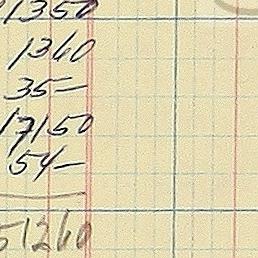 1350
1360
35-
17150
54-
51260